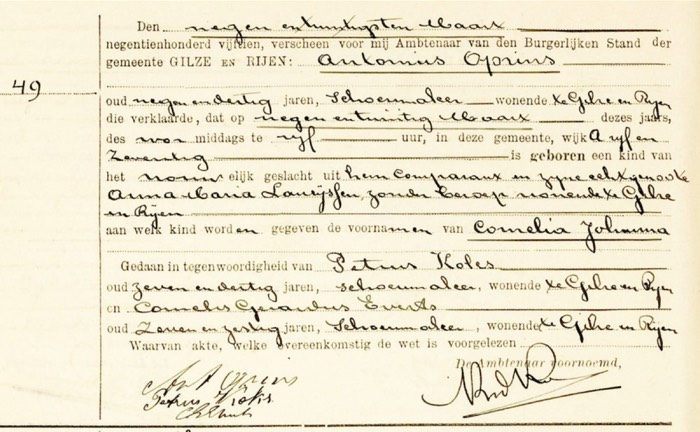 Den negen en twintigsten Maart
negentienhonderd vijftien, verscheen voor mij Ambtenaar van den Burgerlijken Stand der
gemeente GILZE EN RIJEN: Antonius Oprins
49
oud negen en dertig jaren, schoenmaker wonende te Gilze en Rijen
die verklaarde, dat op negen en twintig Maart dezes jaars,
des voor middags te vijf uur, in deze gemeente, wijk A vijf en
zeventig is geboren een kind van
het vrouw elijk geslacht uit hem Comparant en zijne echtgenoote
Anna Maria Laurijssen, zonder beroep wonende te Gilze
en Rijen
aan welk kind worden gegeven de voornamen van Cornelia Johanna
Gedaan in tegenwoordigheid van Petrus Koks
oud zeven en dertig jaren, schoenmaker, wonende te Gilze en Rijen
en Cornelis Gerardus Everts
oud zeven en zestig jaren, schoenmaker, wonende te Gilze en Rijen
Waarvan akte, welke overeenkomstig de wet is voorgelezen
De Ambtenaar voornoemd,
Ant Oprins
Petrus Koks